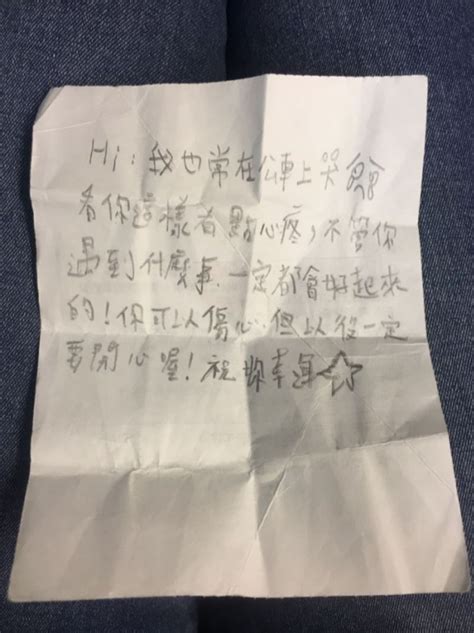 Hi：我也常在公車上哭
看你這樣有點心疼，不管你
遇到什麼事，一定都會好起來
的！你可以傷心但以後一定
要開心喔！祝妳幸運☆